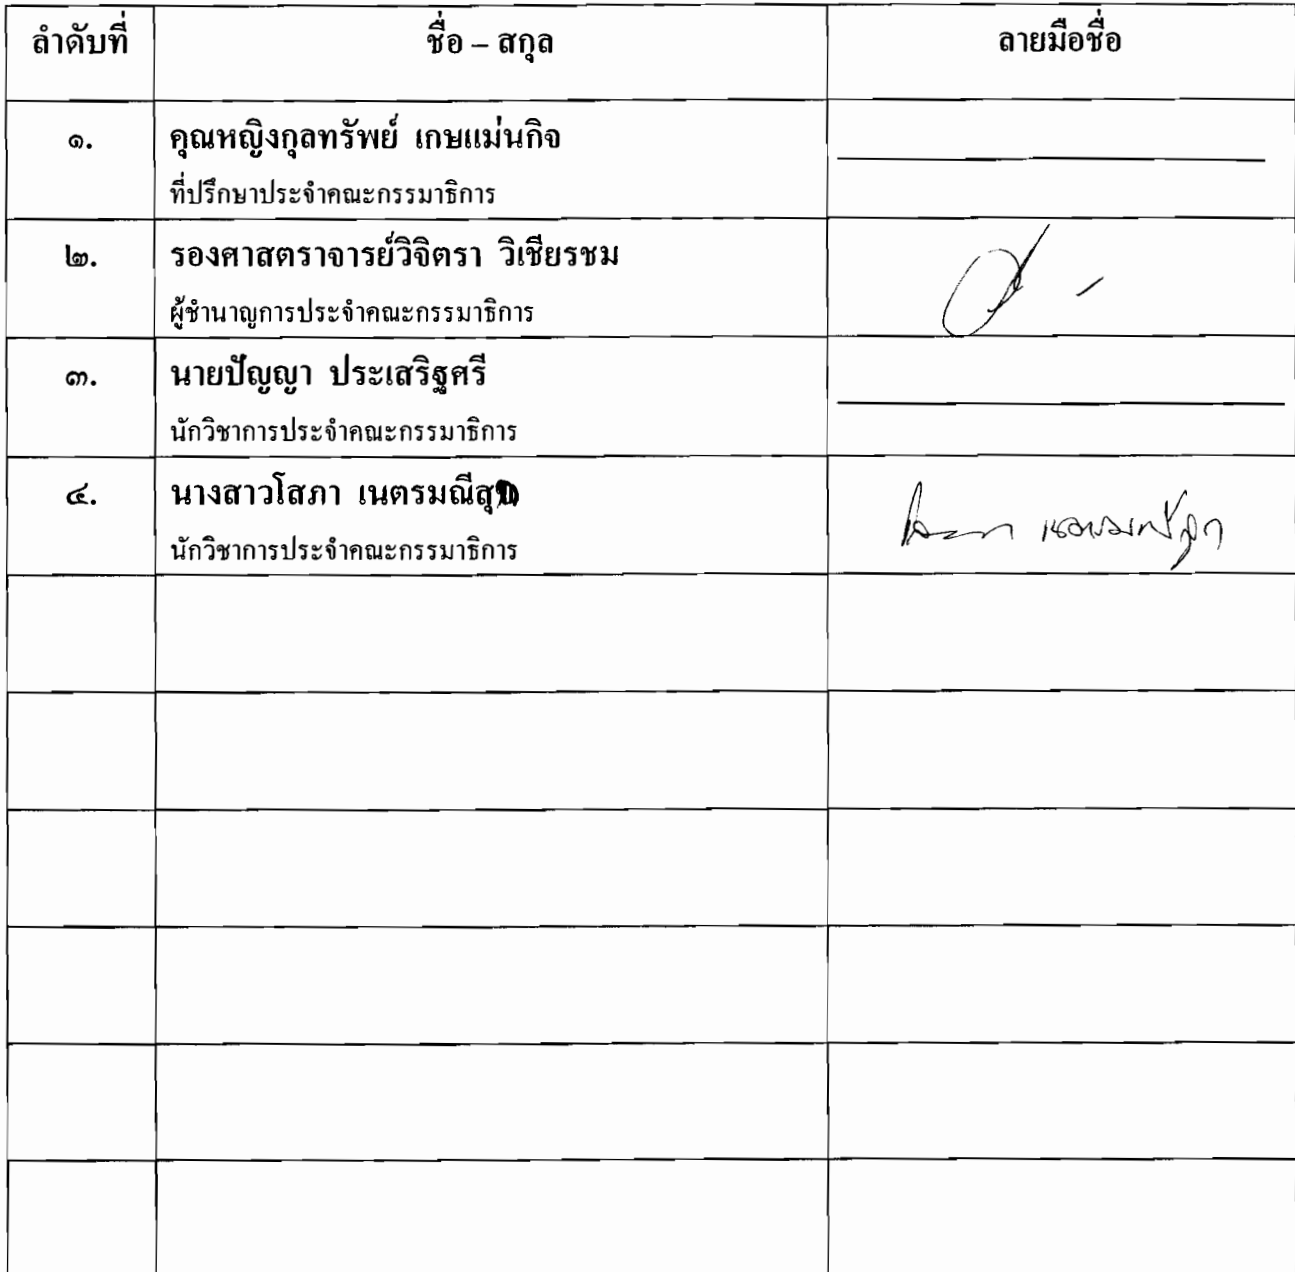 ลำดับที่ ชื่อ – สกุล ลายมือชื่อ
๑. คุณหญิงกุลทรัพย์ เกษแม่นกิจ
ที่ปรึกษาประจำคณะกรรมาธิการ
๒. รองศาสตราจารย์วิจิตรา วิเชียรชม
ผู้ชำนาญการประจำคณะกรรมาธิการ
๓. นายปัญญา ประเสริฐศรี
นักวิชาการประจำคณะกรรมาธิการ
๔. นางสาวโสภา เนตรมณีสุ
นักวิชาการประจำคณะกรรมาธิการ